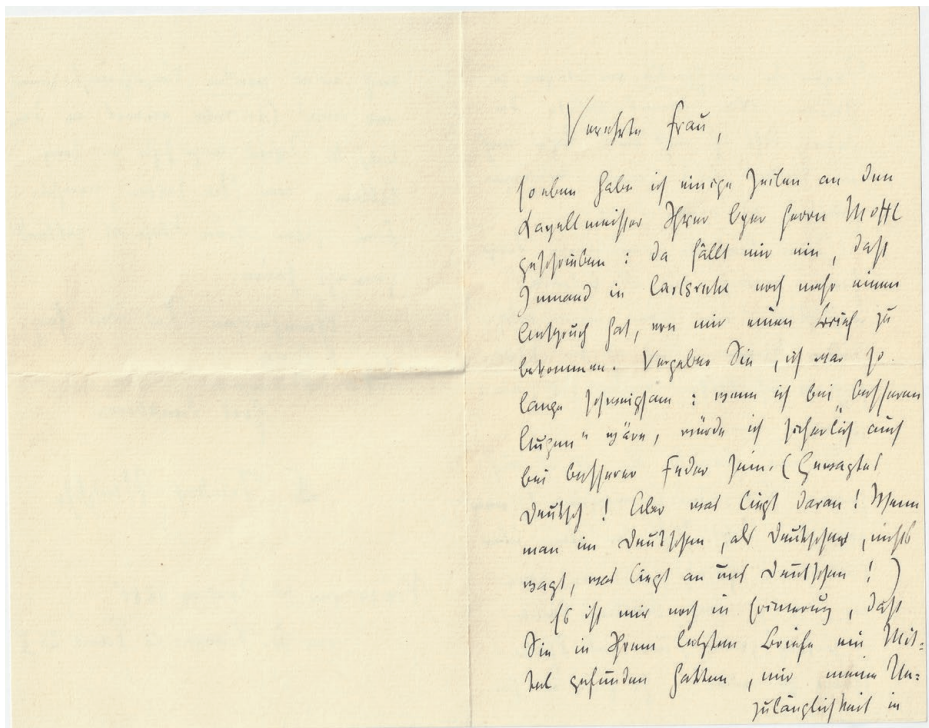 Verehrte Frau,
soeben habe ich einige Zeilen an den
Capellmeister Ihrer Oper Herrn Mottl
geschrieben: da fällt mir ein, daß
Jemand in Carlsruhe noch mehr einen
Anspruch hat, von mir einen Brief zu
bekommen. Vergeben Sie, ich war so
lange schweigsam: wenn ich bei „besseren
Augen“ wäre, würde ich sicherlich auch
bei besserer Feder sein. (Gewagtes
Deutsch! Aber was liegt daran! Wenn
man im Deutschen, als Deutscher, nichts
wagt, was liegt an uns Deutschen!)
Es ist mir noch in Erinnerung, daß
Sie in Ihrem letzten Briefe ein Mit=
tel gefunden hatten, mir meine Un=
zulänglichkeit in